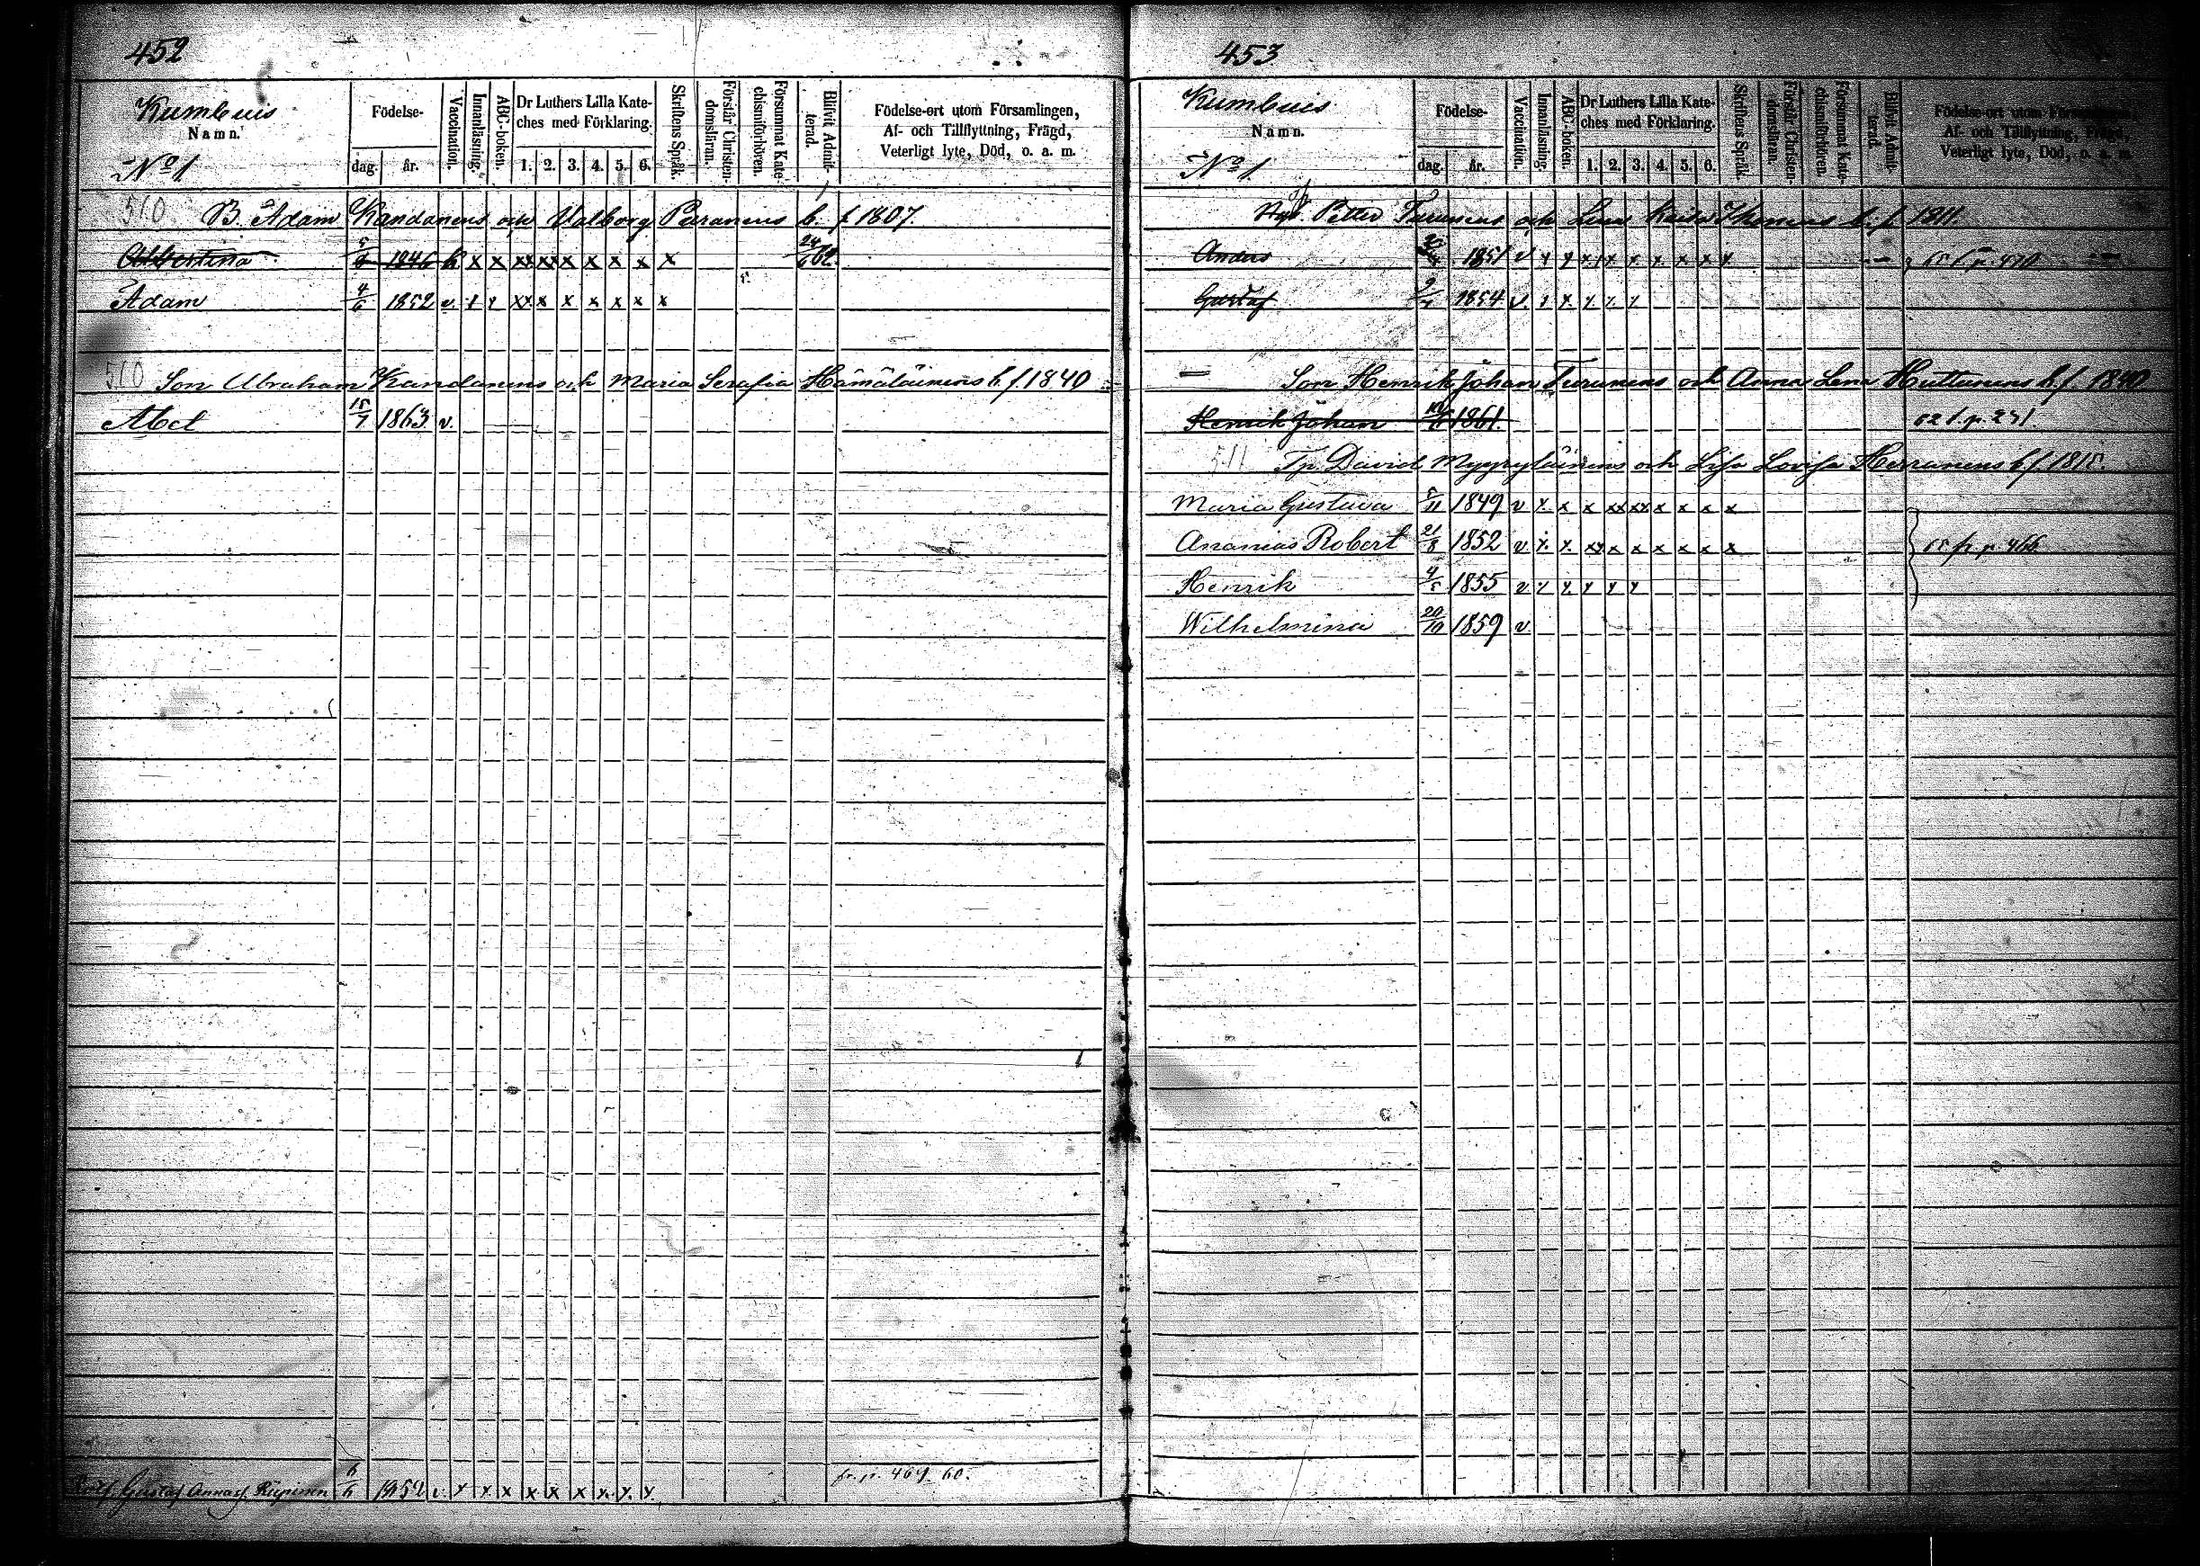 452
Kumbuis
Namn.
No 1.
Födelse-
dag.
år.
Vaccination.
Innanläsning.
ABC-boken.
Dr Luthers Lilla Kate-
ches med Förklaring.
1. 2. 3. 4. 5. 6.
Skriftens Språk.
Förstår Christen-
domsläran.
Försummat Kate-
chismiförhören.
Blifvit Admit-
terad.
Födelse-ort utom Församlingen,
Af- och Tillflyttning, Frägd,
Veterligt lyte, Död, o. a. m.
510 B. Adam Kandanens och Valborg Puranens b. f 1807.
Albertina 1846 x x xx xx x x x x x 24/6 62.
Adam 4/6 1852 v. xx x x x x x x
510 Son Abraham Kandanens och Maria Serafia Hämäläinens b. f. 1840
Abel 15/7 1863 v.
Gustaf Annasf. Riipinen 6/6 1852 v. x x x x x x x x x fr. p. 469. 60.
453
Kumbuis
Namn.
No 1.
Födelse-
dag.
år.
Vaccination.
Innanläsning.
ABC-boken.
Dr Luthers Lilla Kate-
ches med Förklaring.
1. 2. 3. 4. 5. 6.
Skriftens Språk.
Förstår Christen-
domsläran.
Försummat Kate-
chismiförhören.
Blifvit Admit-
terad.
Födelse-ort utom Församlingen,
Af- och Tillflyttning, Frägd,
Veterligt lyte, Död, o. a. m.
Petter Turunens och Lena Kaisa Ihonens b. f. 1811.
Anders 1851 v 65 t. p. 470
Gustaf 1854 v.
Son Henrik Johan Turunens och Anna Lena Huttunens b. f. 1840
Henrik Johan 1861. 62 t. p. 271.
511 Tp. David Myyryläinens och Lisa Lovisa Herranens b. f. 1815.
Maria Gustava 5/11 1849 v x x x xx xx x x x x x
Ananias Robert 21/8 1852 v. x x xx x x x x x x 65 fr. p. 466
Henrik 4/5 1855 v
Wilhelmina 20/10 1859 v.